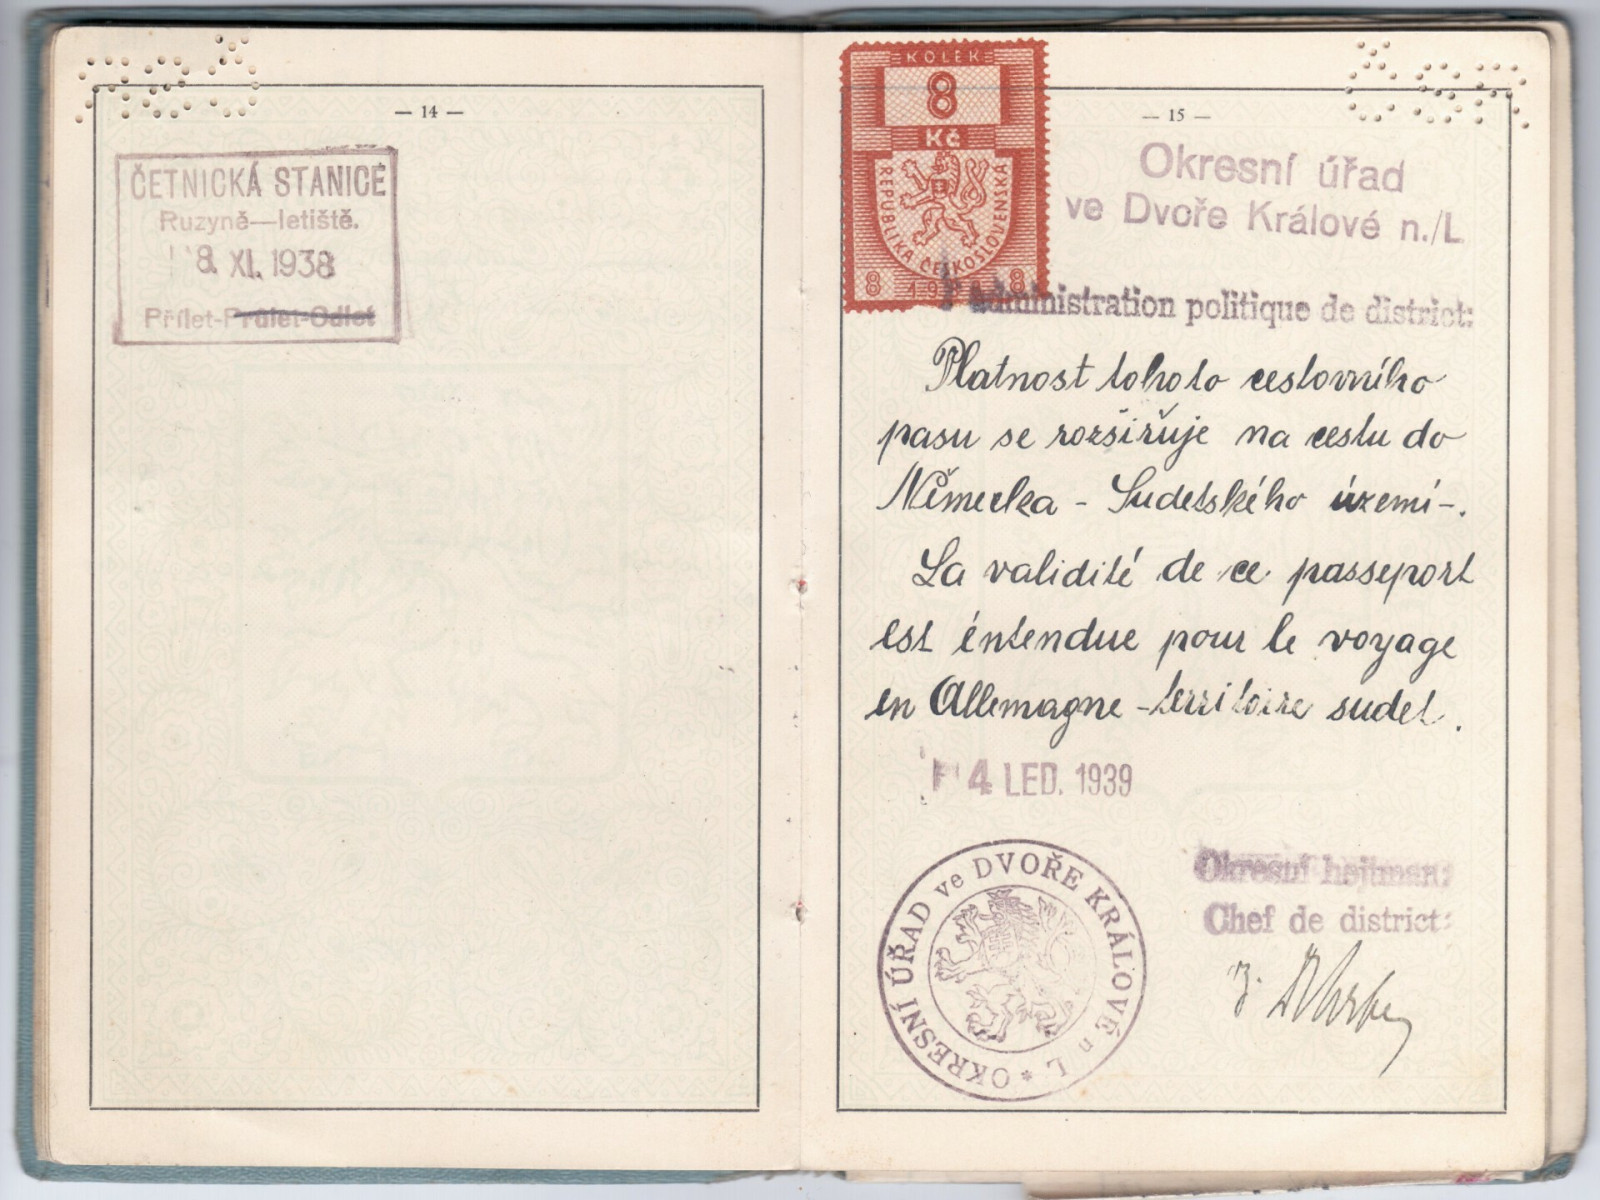 — 14 —
ČETNICKÁ STANICE
Ruzyně—letiště.
8. XI. 1938
Přílet-Průlet-Odlet
KOLEK
8
Kč
REPUBLIKA ČESKOSLOVENSKÁ
8 19 8
— 15 —
Okresní úřad
ve Dvoře Králové n./L
l'administration politique de district:
Platnost tohoto cestovního
pasu se rozšiřuje na cestu do
Německa - Sudetského území-.
La validité de ce passeport
est éntendue pour le voyage
en Allemagne -territoire sudet.
4 LED. 1939
OKRESNÍ ÚŘAD ve DVOŘE KRÁLOVÉ n/L *
Okresní hejtman:
Chef de district: